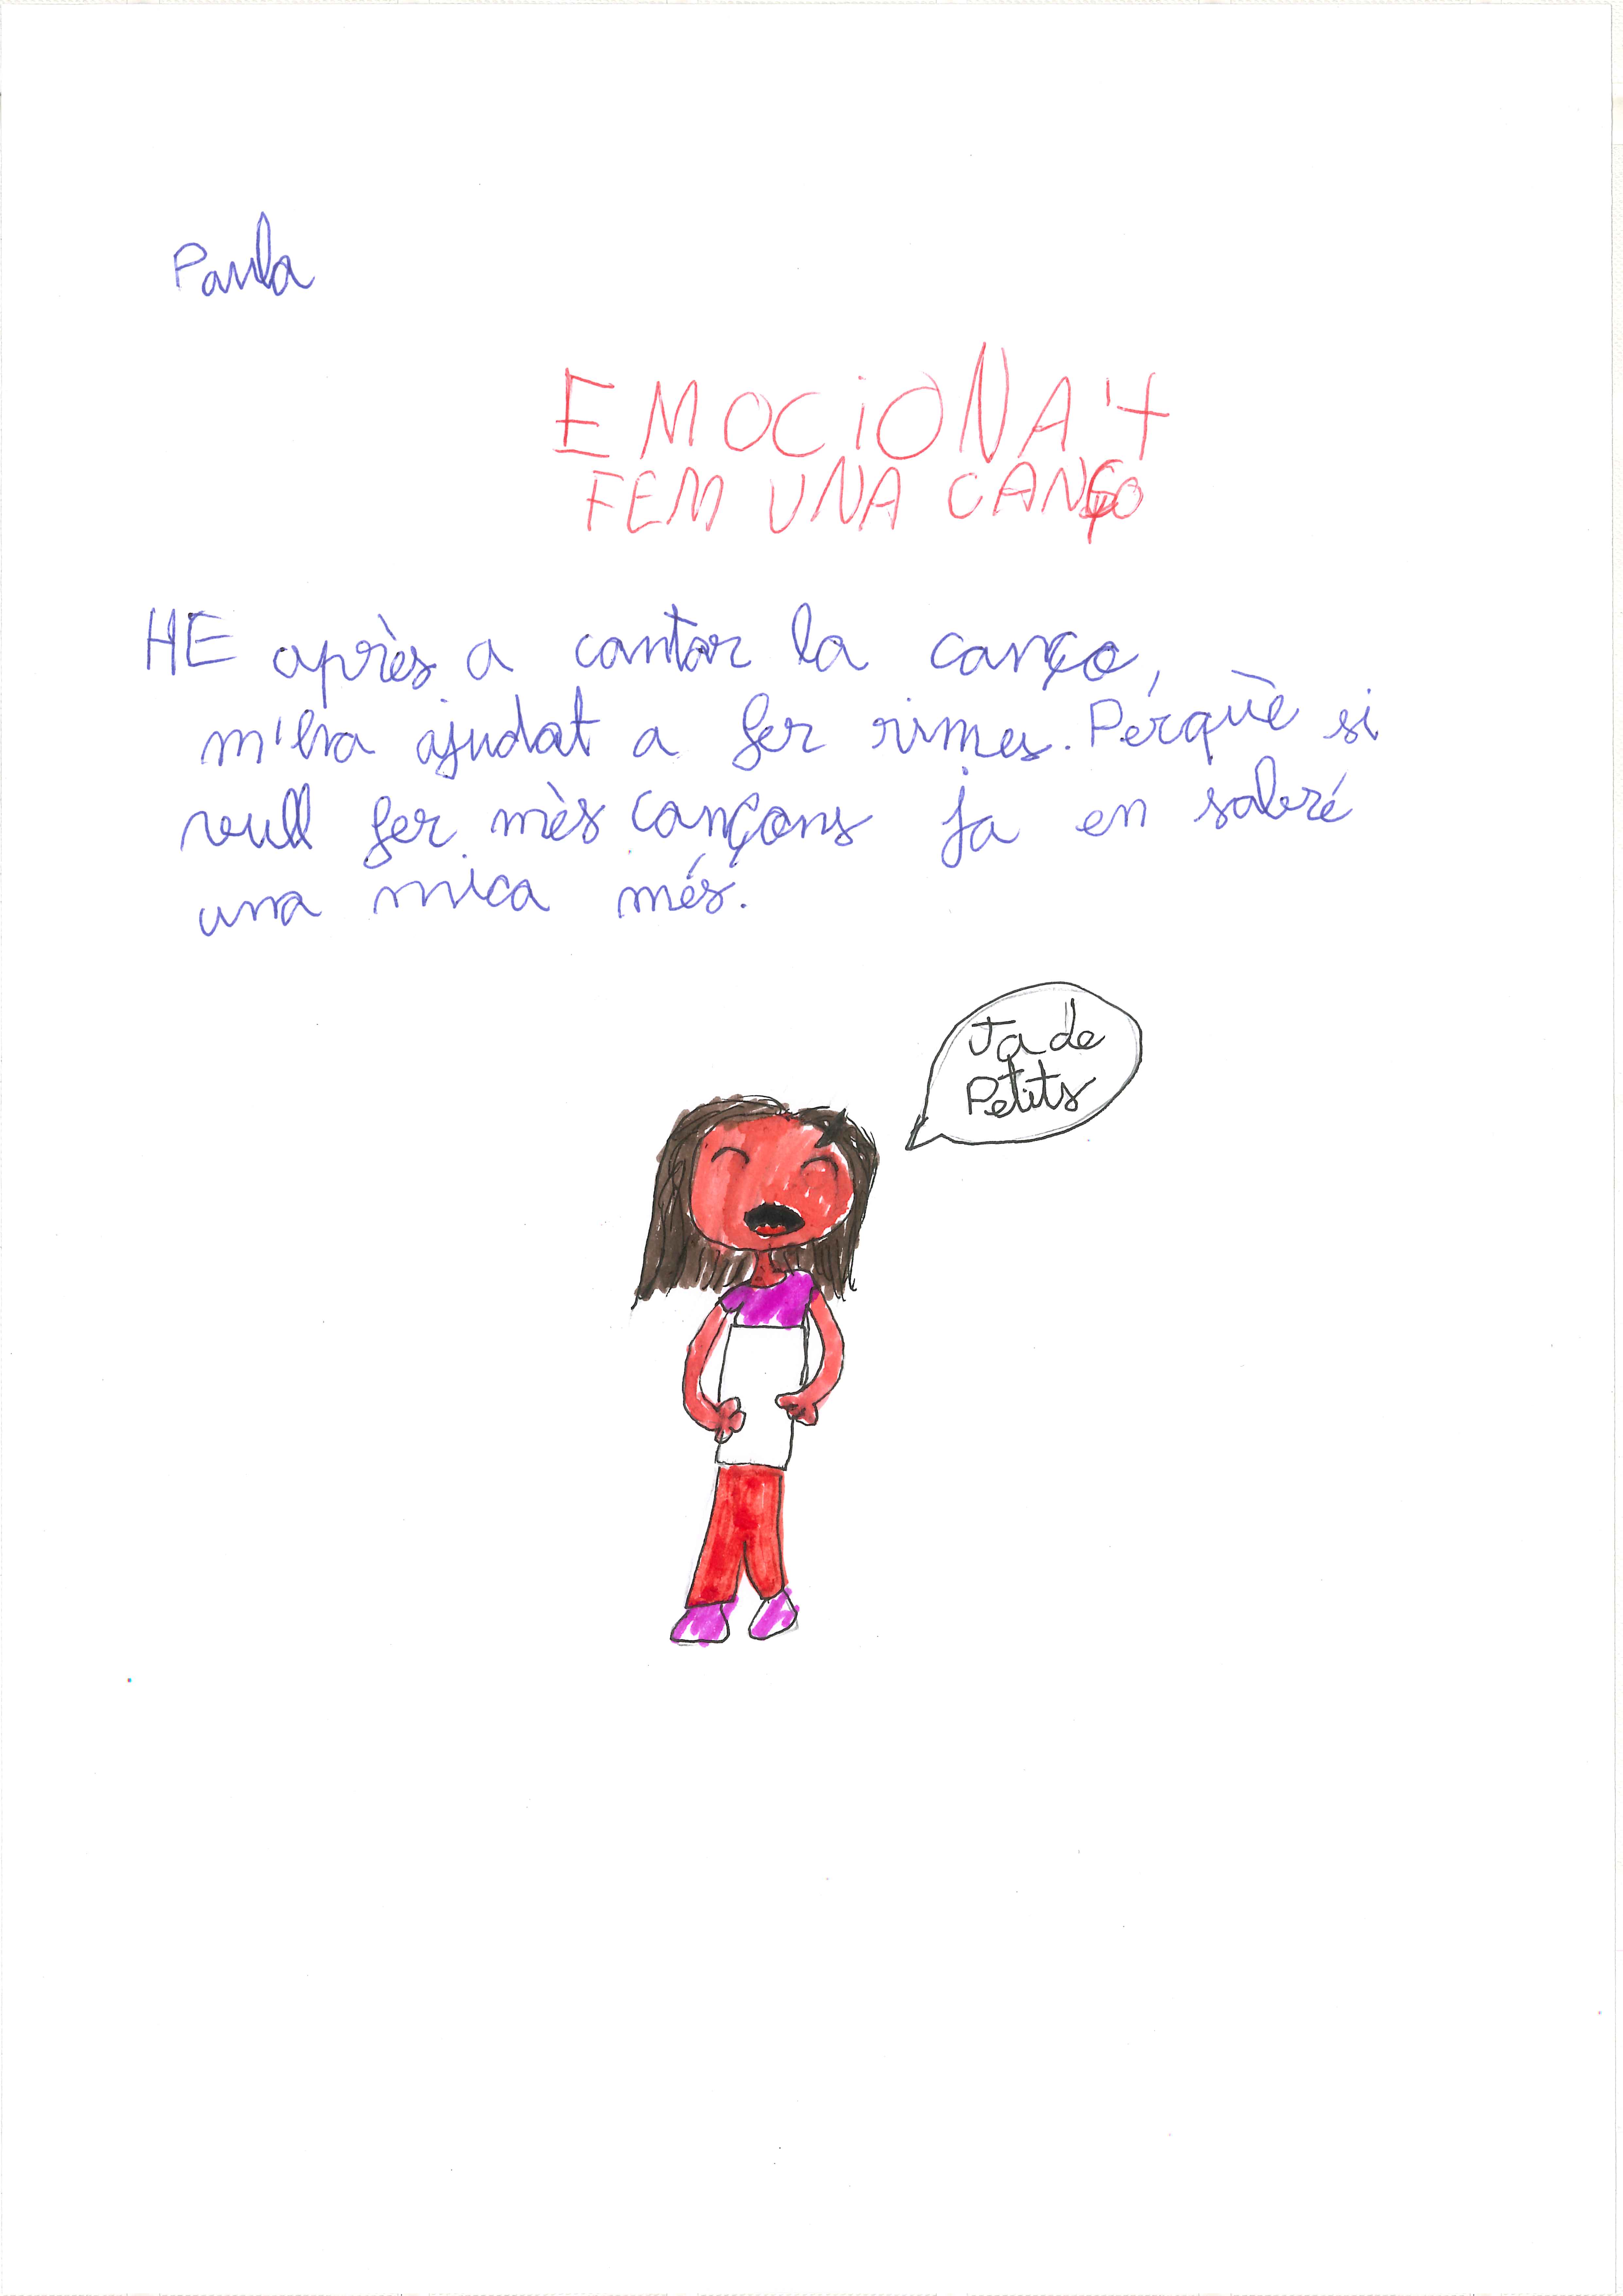 Paula
EMOCIONA't
FEM UNA CANÇO
HE après a cantar la canço,
m'ha ajudat a fer rimes. Perquè si
vull fer mès cançons ja en sabré
una mica més.
Ja de
Petits